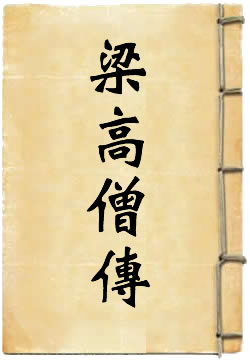 梁高僧傳